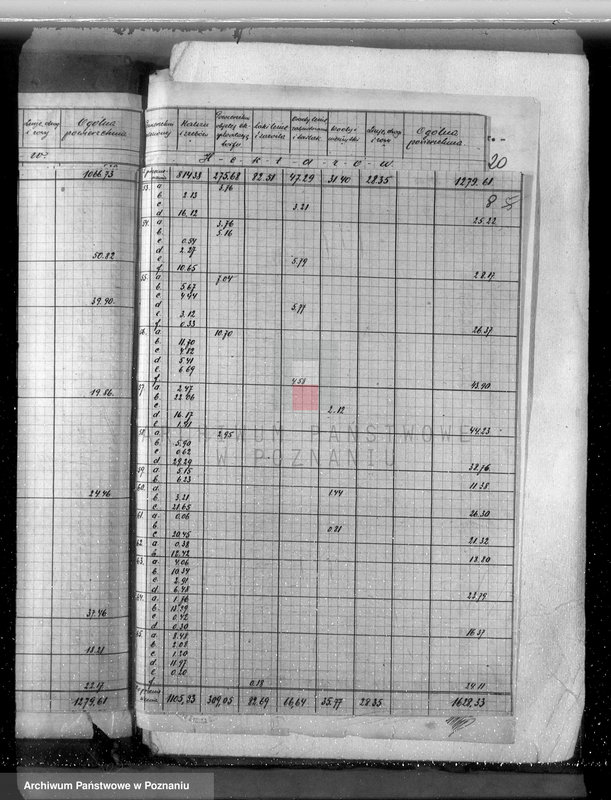 Ogólna
powierzchnia
1066.73
50.82
39.90.
19.86.
24.46
37.46
18.21
22.17
1279.61
Ogólna
powierzchnia
H-e-k-t-a-r-o-w
20
814.33 275,68 82.51 47.29 31.40 28.35 1279.61
53. a 3.76
b. 2.13
c. 3.21
d. 16.12 25,22
54. a. 3.76
b. 5.16
c. 0.54
d. 2.27
e. 5.79
f. 10.65 28.17
55. a 7.04
b. 5.67
c. 4.44
d. 5.77
e. 3.12
f. 0.33 26.37
56. a 10.70
b. 11.70
c. 4.82
d. 5.41
e. 6.69
f. 4.58 43.90
57. a 2.47
b. 22.06
c. 2.12
d. 16.17
e. 1.41 44.23
58. a. 2.95
b. 5.90
c. 0.62
d. 29.29 38.76
59. a. 5.15
b. 6.23 11.38
60. a. 1.44
b. 3.21
c. 21.65 26.30
61. a. 0.06
b. 0.21
c. 20.45 21.32
62. a. 0.38
b. 12.42 13.80
63. a. 4.06
b. 10.34
c. 2.91
d. 6.48 23.79
64. a. 1.76
b. 13.59
c. 0.42
d. 0.30 16.37
65. a. 8.48
b. 2.08
c. 1.20
d. 11.97
e. 0.20
f. 0.18 24.11
1105,33 309,05 82.69 66,64 35.77 28.35 1628.33
ARCHIWUM PAŃSTWOWE
W POZNANIU
Archiwum Państwowe w Poznaniu